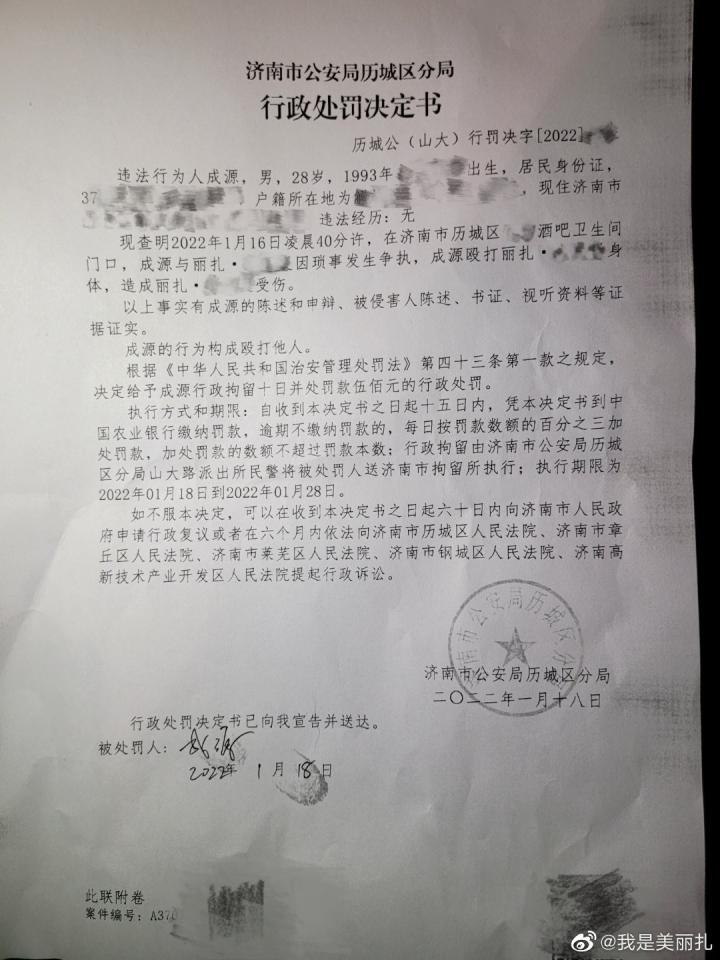 济南市公安局历城区分局
行政处罚决定书
历城公（山大）行罚决字[2022]
违法行为人成源，男，28岁，1993年 出生，居民身份证，
37 户籍所在地为 ，现住济南市
违法经历：无
现查明2022年1月16日凌晨40分许，在济南市历城区 酒吧卫生间
门口，成源与丽扎· 因琐事发生争执，成源殴打丽扎· 身
体，造成丽扎· 受伤。
以上事实有成源的陈述和申辩、被侵害人陈述、书证、视听资料等证
据证实。
成源的行为构成殴打他人。
根据《中华人民共和国治安管理处罚法》第四十三条第一款之规定，
决定给予成源行政拘留十日并处罚款伍佰元的行政处罚。
执行方式和期限：自收到本决定书之日起十五日内，凭本决定书到中
国农业银行缴纳罚款，逾期不缴纳罚款的，每日按罚款数额的百分之三加
处罚款，加处罚款的数额不超过罚款本数；行政拘留由济南市公安局历城
区分局山大路派出所民警将被处罚人送济南市拘留所执行；执行期限为
2022年01月18日到2022年01月28日。
如不服本决定，可以在收到本决定书之日起六十日内向济南市人民政
府申请行政复议或者在六个月内依法向济南市历城区人民法院、济南市章
丘区人民法院、济南市莱芜区人民法院、济南市钢城区人民法院、济南高
新技术产业开发区人民法院提起行政诉讼。
济南市公安局历城区分局
济南市公安局历城区分局
二〇二二年一月十八日
行政处罚决定书已向我宣告并送达。
被处罚人：成源
2022年 1 月 18 日
此联附卷
案件编号：A370
@我是美丽扎